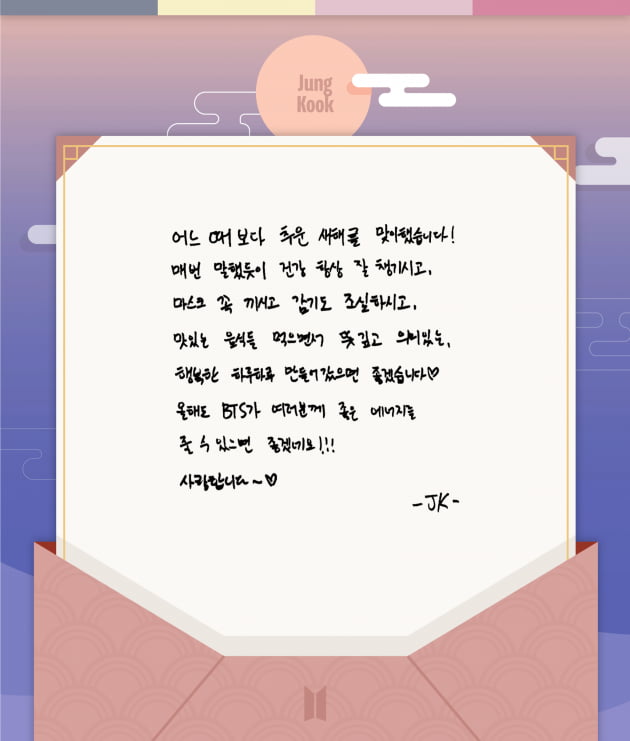 Jung
Kook
어느 때보다 추운 새해를 맞이했습니다!
매번 말했듯이 건강 항상 잘 챙기시고,
마스크 꼭 끼시고 감기도 조심하시고,
맛있는 음식들 먹으면서 뜻깊고 의미있는,
행복한 하루하루 만들어갔으면 좋겠습니다♡
올해도 BTS가 여러분께 좋은 에너지를
줄 수 있으면 좋겠네요!!!
사랑합니다~♡
-JK-